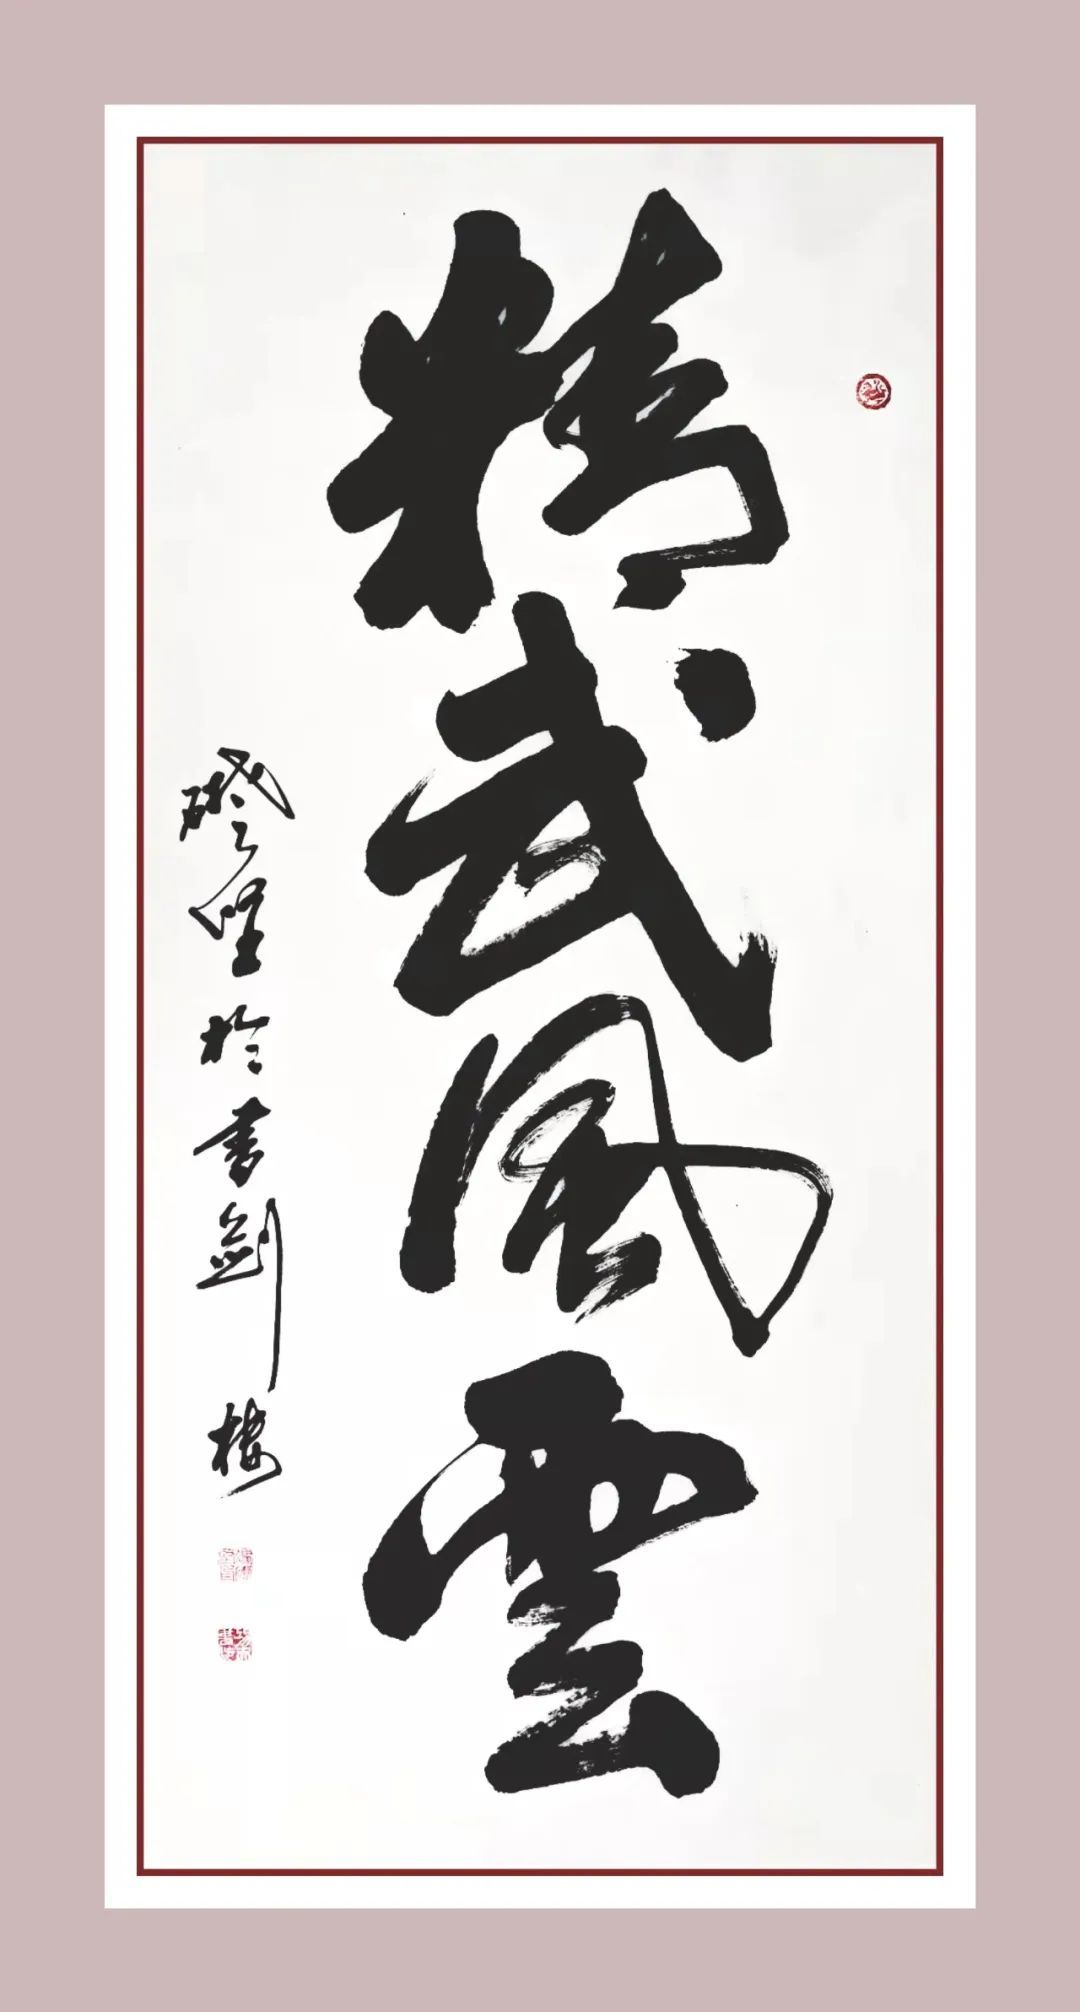 精武風雲
於書劍樓